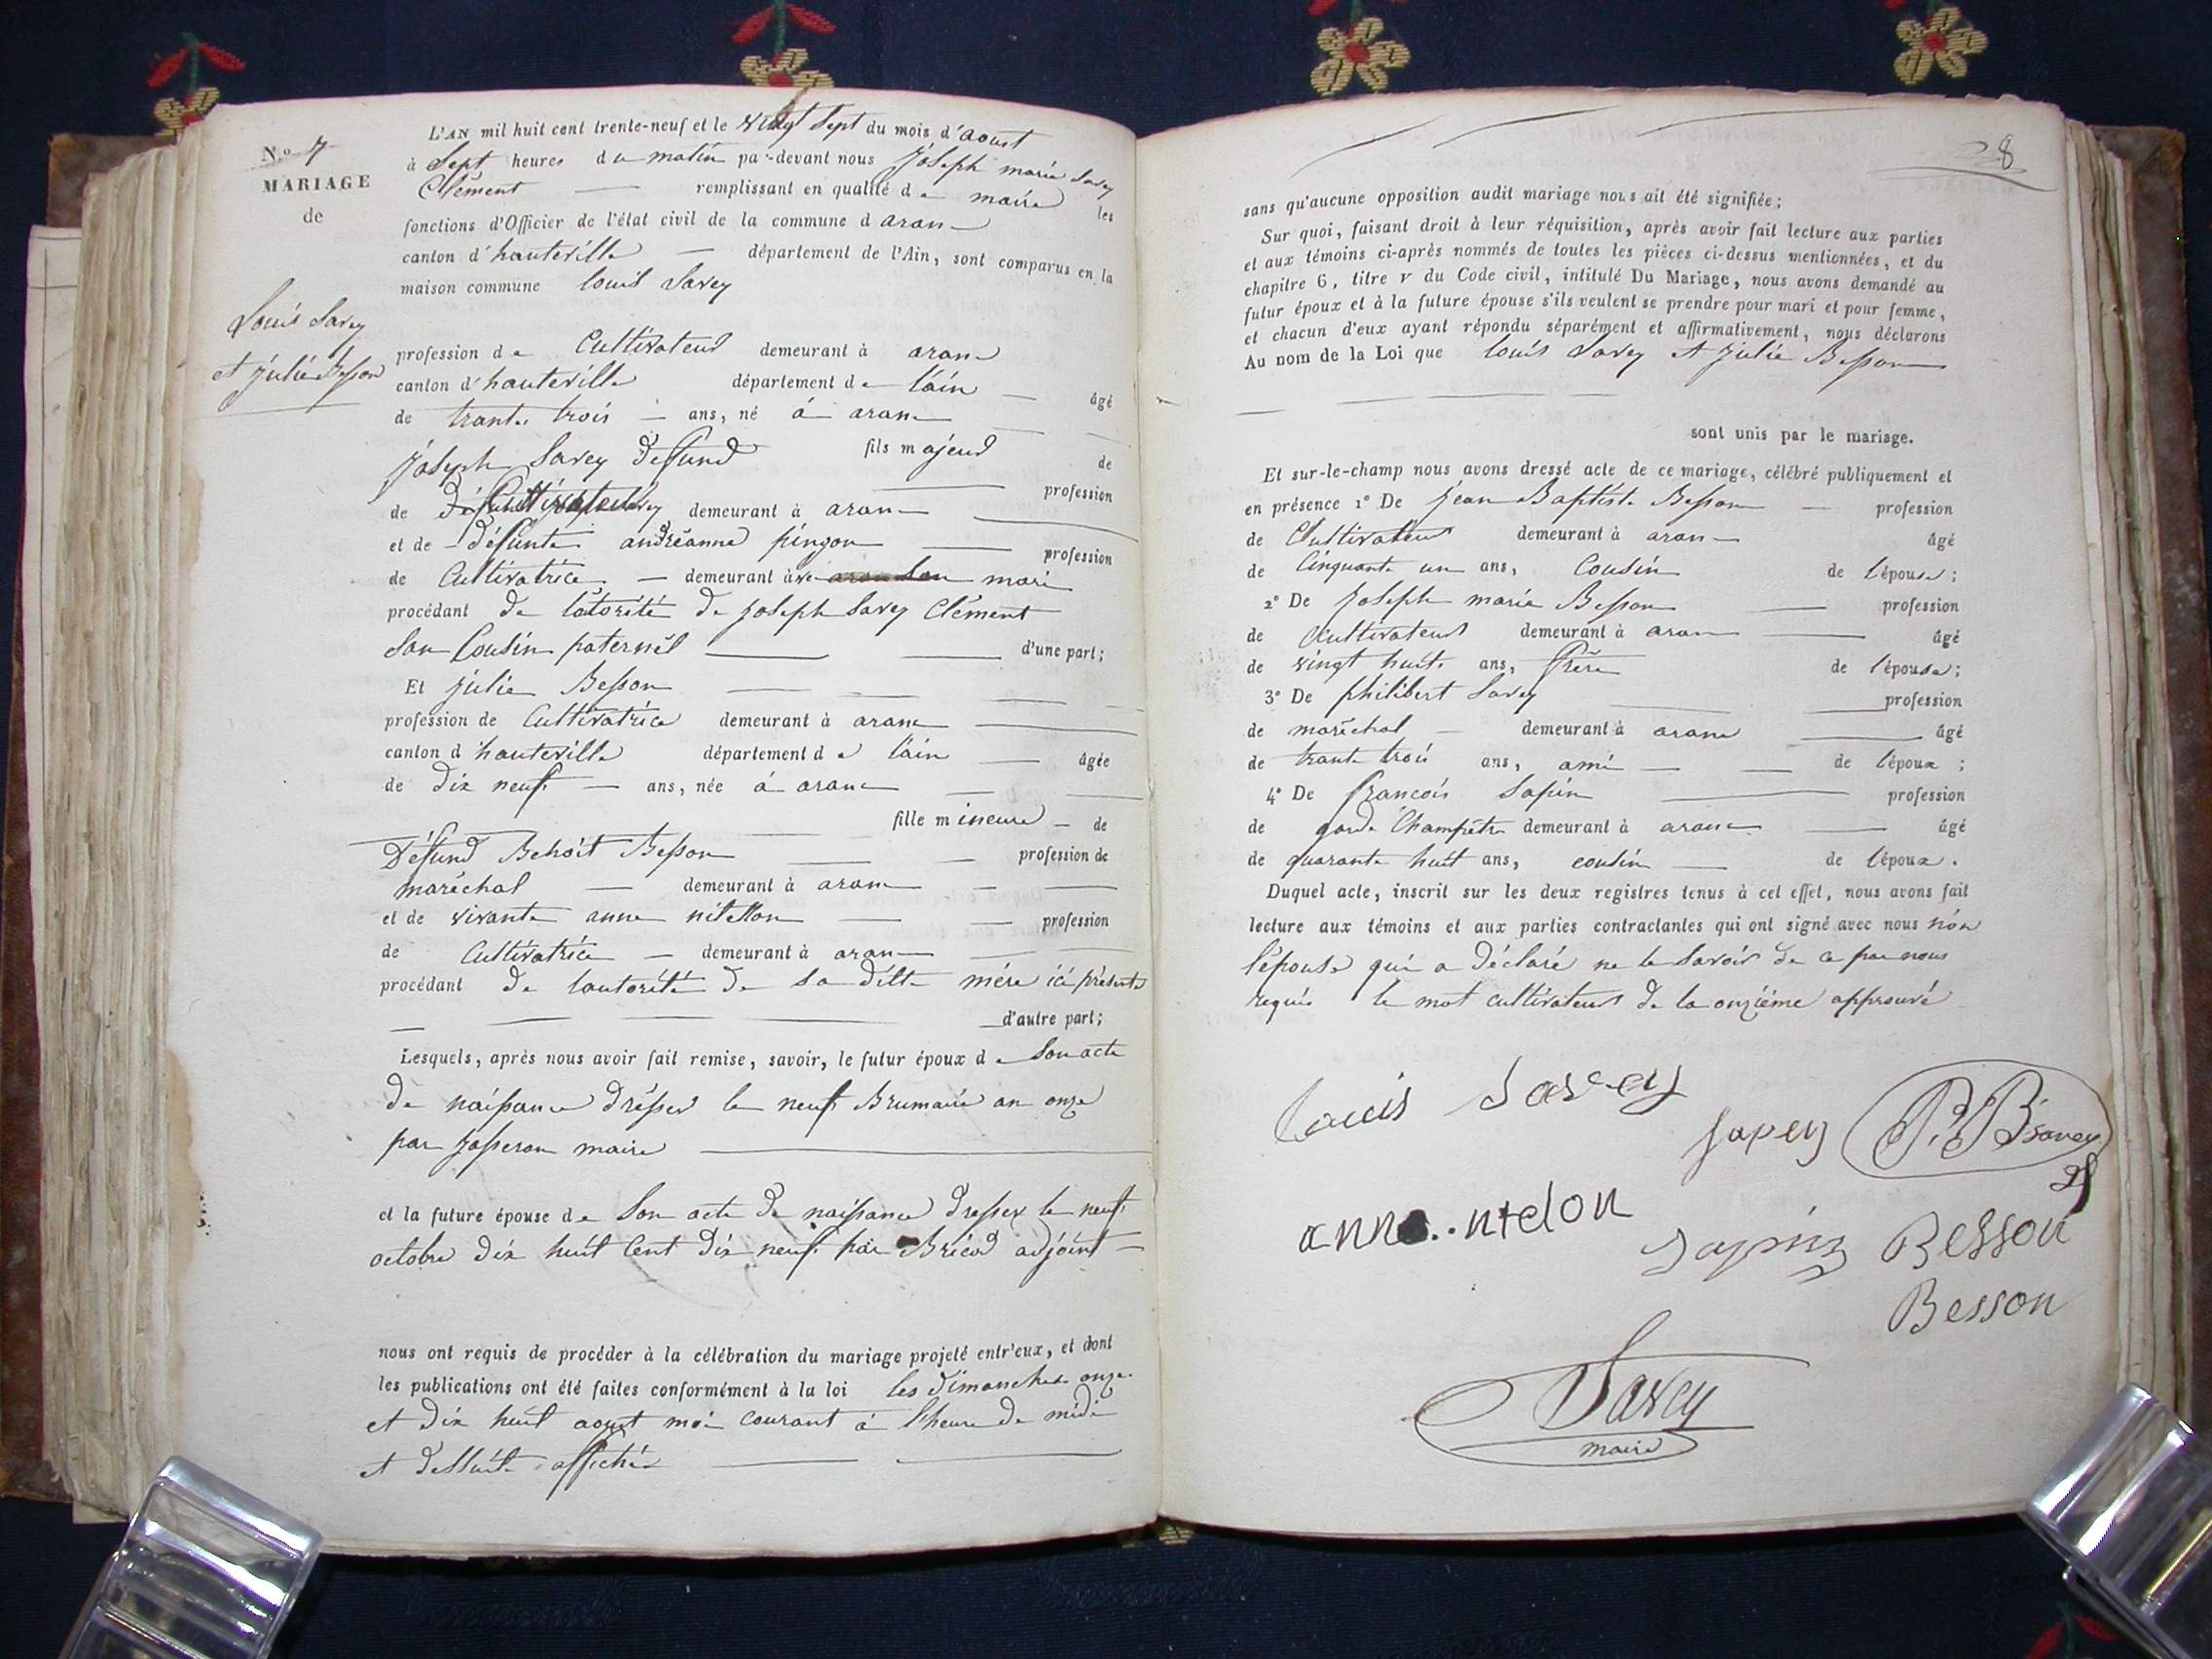 N.o 7
MARIAGE
de
Louis Savey
et julie Besson
L'AN mil huit cent trente-neuf et le vingt sept du mois d'aoust
à sept heures du matin par-devant nous joseph marie Savey
Clément remplissant en qualité de maire les
fonctions d'Officier de l'état civil de la commune d aranc
canton d'hauteville département de l'Ain, sont comparus en la
maison commune louis Savey
profession de Cultivateur demeurant à aranc
canton d'hauteville département de lain âgé
de trante trois ans, né à aranc
fils majeur de
joseph Savey défund profession
de demeurant à aranc
et de défunte andréanne pingon profession
de Cultivatrice demeurant mari
procédant de latorité de joseph Savey Clément
son Cousin paternél d'une part;
Et julie Besson
profession de Cultivatrice demeurant à aranc
canton d'hauteville département de lain âgée
de dix neuf ans, née à aranc
fille mineure de
Défund Benoit Besson profession de
maréchal demeurant à aranc
et de vivante anne nitellon profession
de Cultivatrice demeurant à aranc
procédant de lautorité de sa ditte mére ici présente
d'autre part;
Lesquels, après nous avoir fait remise, savoir, le futur époux de son acte
de naissance drésser le neuf Brumaire an onze
par josseron maire
et la future épouse de son acte de naissance dresser le neuf
octobre dix huit cent dix neuf par Bricod adjoint
nous ont requis de procéder à la célébration du mariage projeté entr'eux, et dont
les publications ont été faites conformément à la loi les dimanches onze
et dix huit aout moi courant à l'heure de midi
et dessuite affichés
8
sans qu'aucune opposition audit mariage nous ait été signifiée;
Sur quoi, faisant droit à leur réquisition, après avoir fait lecture aux parties
et aux témoins ci-après nommés de toutes les pièces ci-dessus mentionnées, et du
chapitre 6, titre v du Code civil, intitulé Du Mariage, nous avons demandé au
futur époux et à la future épouse s'ils veulent se prendre pour mari et pour femme,
et chacun d'eux ayant répondu séparément et affirmativement, nous déclarons
Au nom de la Loi que louis Savey et julie Besson
sont unis par le mariage.
Et sur-le-champ nous avons dressé acte de ce mariage, célébré publiquement et
en présence 1° De jean Baptiste Besson profession
de Cultivateur demeurant à aranc âgé
de Cinquante un ans, Cousin de lépouse;
2° De joseph marie Besson profession
de Cultivateur demeurant à aranc âgé
de vingt huit ans, frére de l'épouse;
3° De philibert Savey profession
de maréchal demeurant à aranc âgé
de trante trois ans, ami de lépoux;
4° De francois Sapin profession
de garde Champétre demeurant à aranc âgé
de quarante huit ans, cousin de lépoux.
Duquel acte, inscrit sur les deux registres tenus à cet effet, nous avons fait
lecture aux témoins et aux parties contractantes qui ont signé avec nous nón
l'épouse qui a déclaré ne le savoir de ce par nous
requis le mot cultivateur de la onziéme approuvé
Louis Savey
P. B. Savey
anne nitelon
Sapin
Besson
Besson
Savey
maire